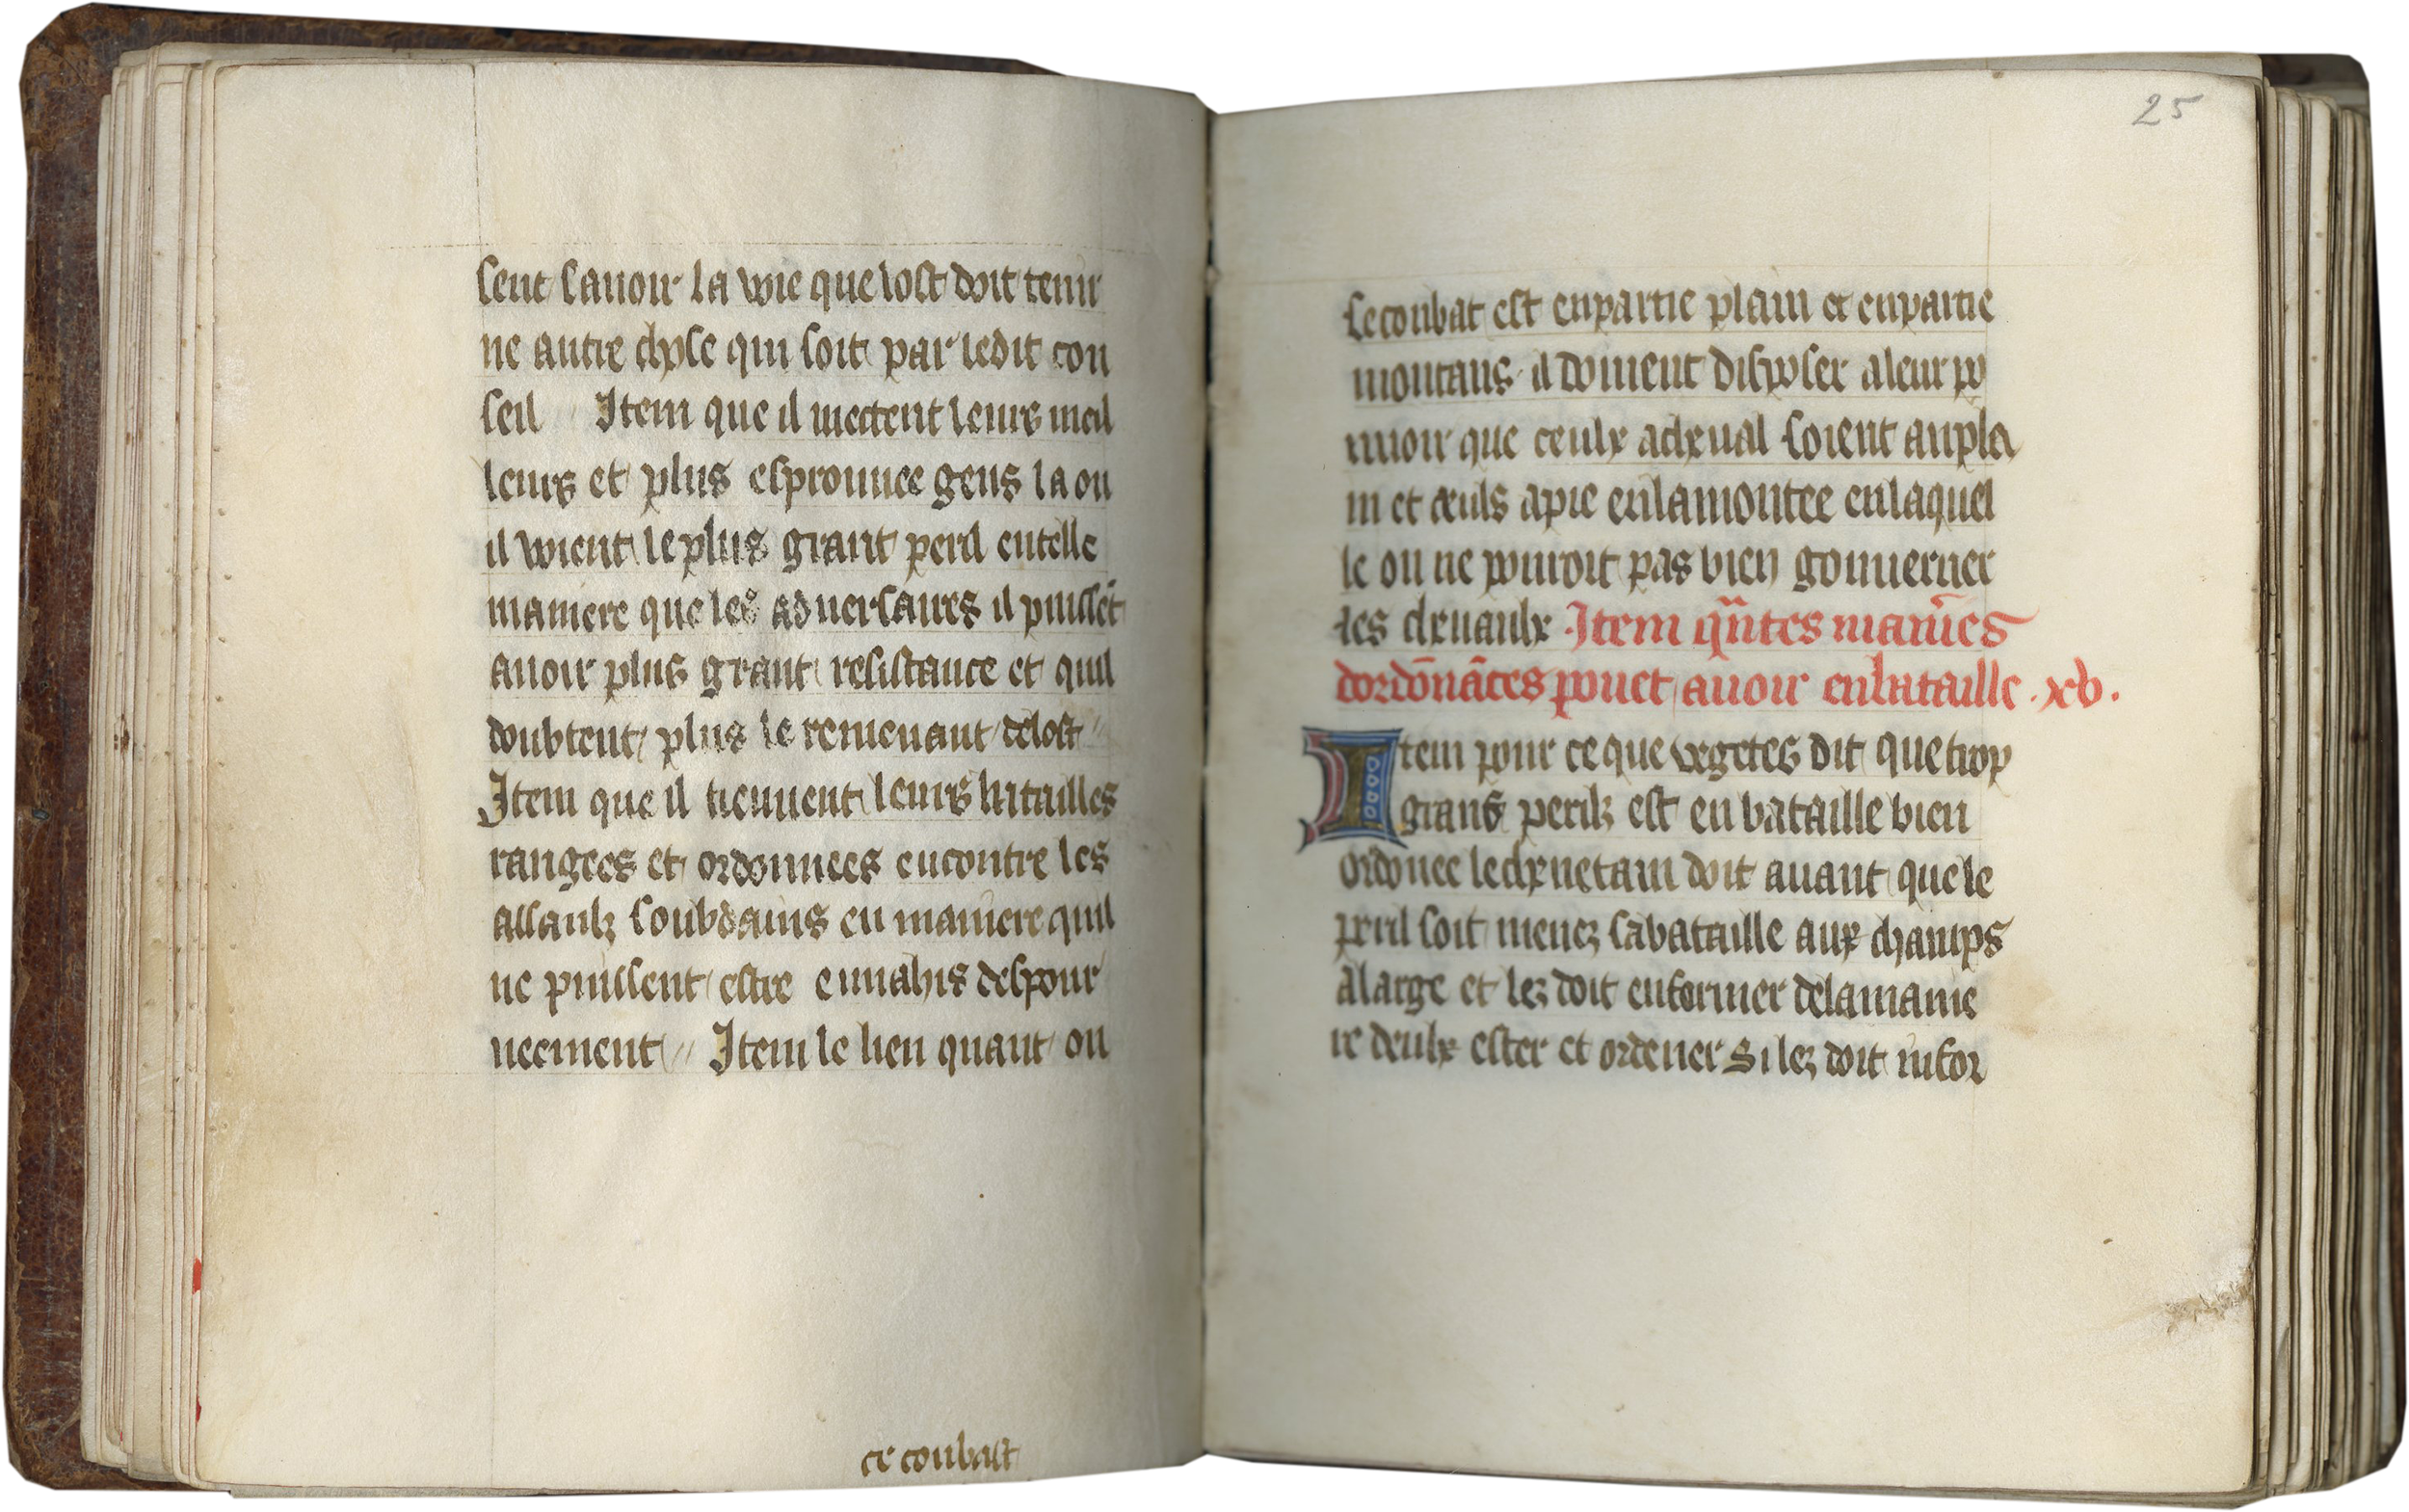 sent sauoir la voie que lost doit tenir
ne autre chose qui soit par ledit con
seil // Item que il mectent leurs meil
leurs et plus esprouuee gens la ou
il voient le plus grant peril en telle
maniere que les aduersaires il puissēt
auoir plus grant resistance et quil
doubtent plus le remenant delost //
Item que il tiennent leurs batailles
rangees et ordonnees encontre les
assaulz soubdains en maniere quil
ne puissent estre enuahis despour
ueement // Item le lieu quant on
ce conbast
25
se conbat est en partie plain et en partie
montans il doiuent disposer a leur po
uuoir que ceulx a cheual soient au pla
in et ceuls a pie en la montee en laquel
le on ne pouroit pas bien gouuerner
les cheuaulx Item qūtes manīes
dordōnāces pouet auoir en bataille . xv.
Item pour ce que vegetes dit que trop
grans perilz est en bataille bien
ordonee le cheuetain doit auant que le
peril soit menez sa bataille aux champs
a large et lez doit enformer de la manie
re deulx ester et ordener Si lez doit infor